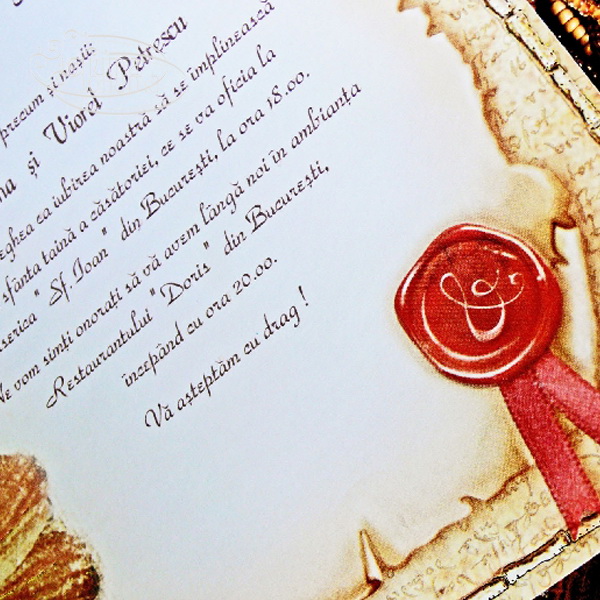 precum și nașii:
și Viorel Petrescu
ca iubirea noastră să se împlinească
sfânta taină a căsătoriei, ce se va oficia la
"Sf. Ioan" din București, la ora 18.00.
Ne vom simți onorați să vă avem lângă noi în ambianța
Restaurantului "Doris" din București,
începând cu ora 20.00.
Vă așteptăm cu drag!